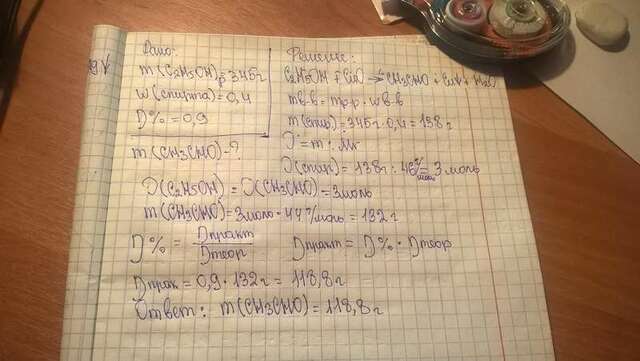 Дано:
m(C2H5OH)р=345г
w(спирта)=0,4
D%=0,9
m(CH3CHO)-?
Решение:
C2H5OH + CuO → CH3CHO + Cu↓ + H2O
mв-в=mр.р·wв-в
m(спир)=345г·0,4=138г
D=m:Mr
D(спир)=138г:46г/моль=3моль
D(C2H5OH)=D(CH3CHO)=3моль
m(CH3CHO)=3моль·44г/моль=132г
D%=Dпракт/Dтеор Dпракт=D%·Dтеор
Dпрак=0,9·132г=118,8г
Ответ: m(CH3CHO)=118,8г